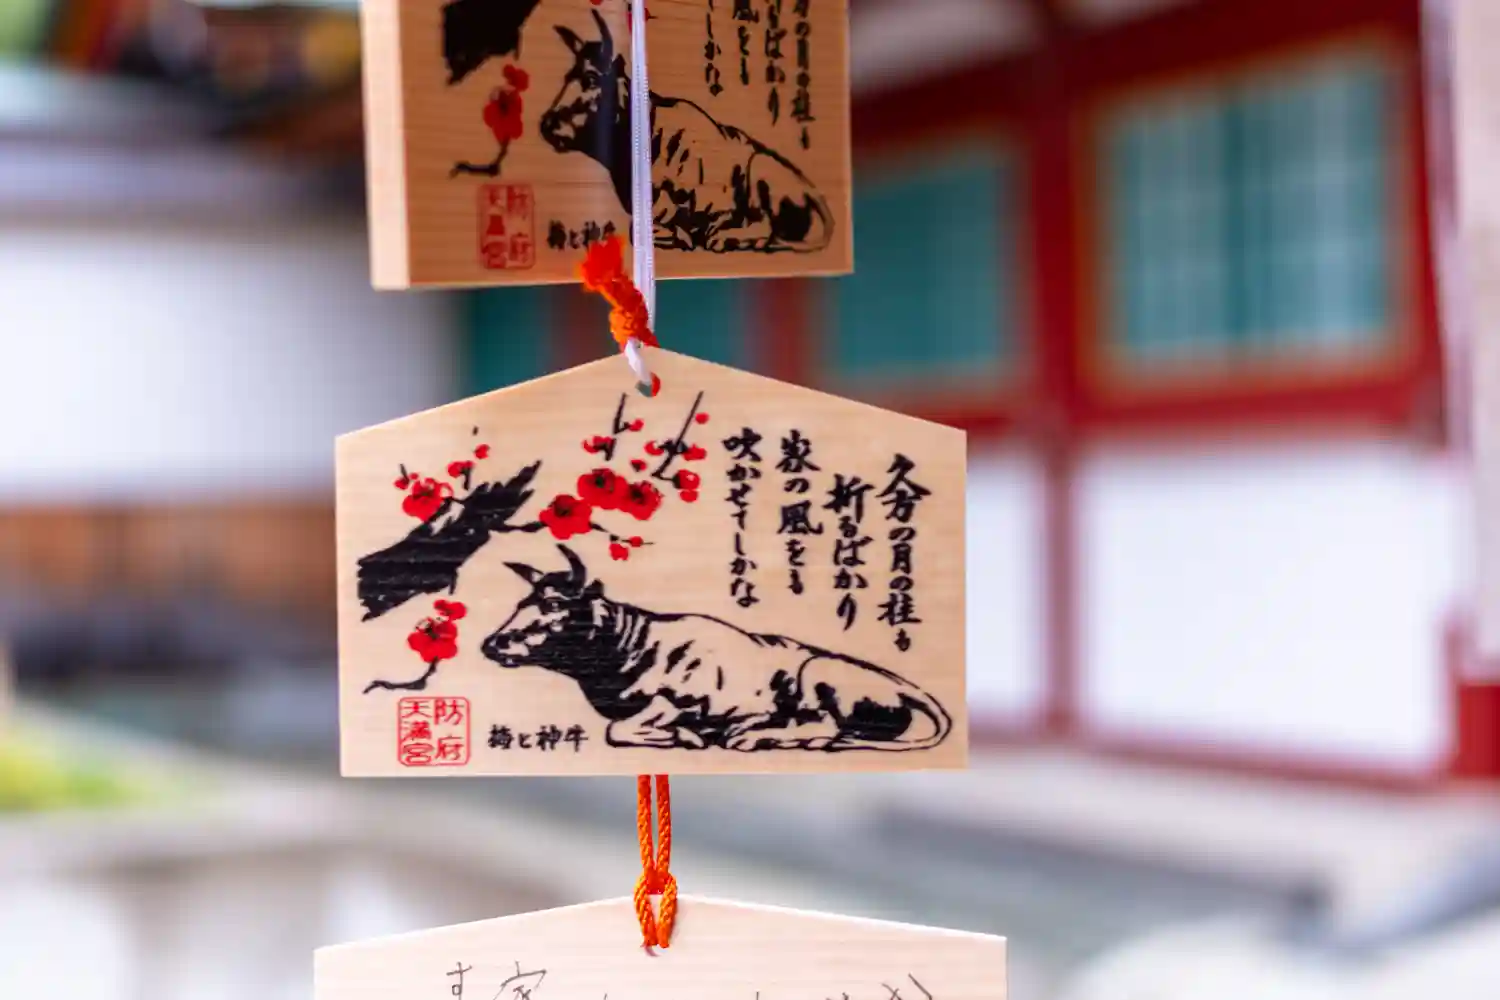 の月の桂も
るばかり
風をも
てしかな
防府
天満宮
梅と神牛
久方の月の桂も
折るばかり
家の風をも
吹かせてしかな
防府
天満宮
梅と神牛
す 家